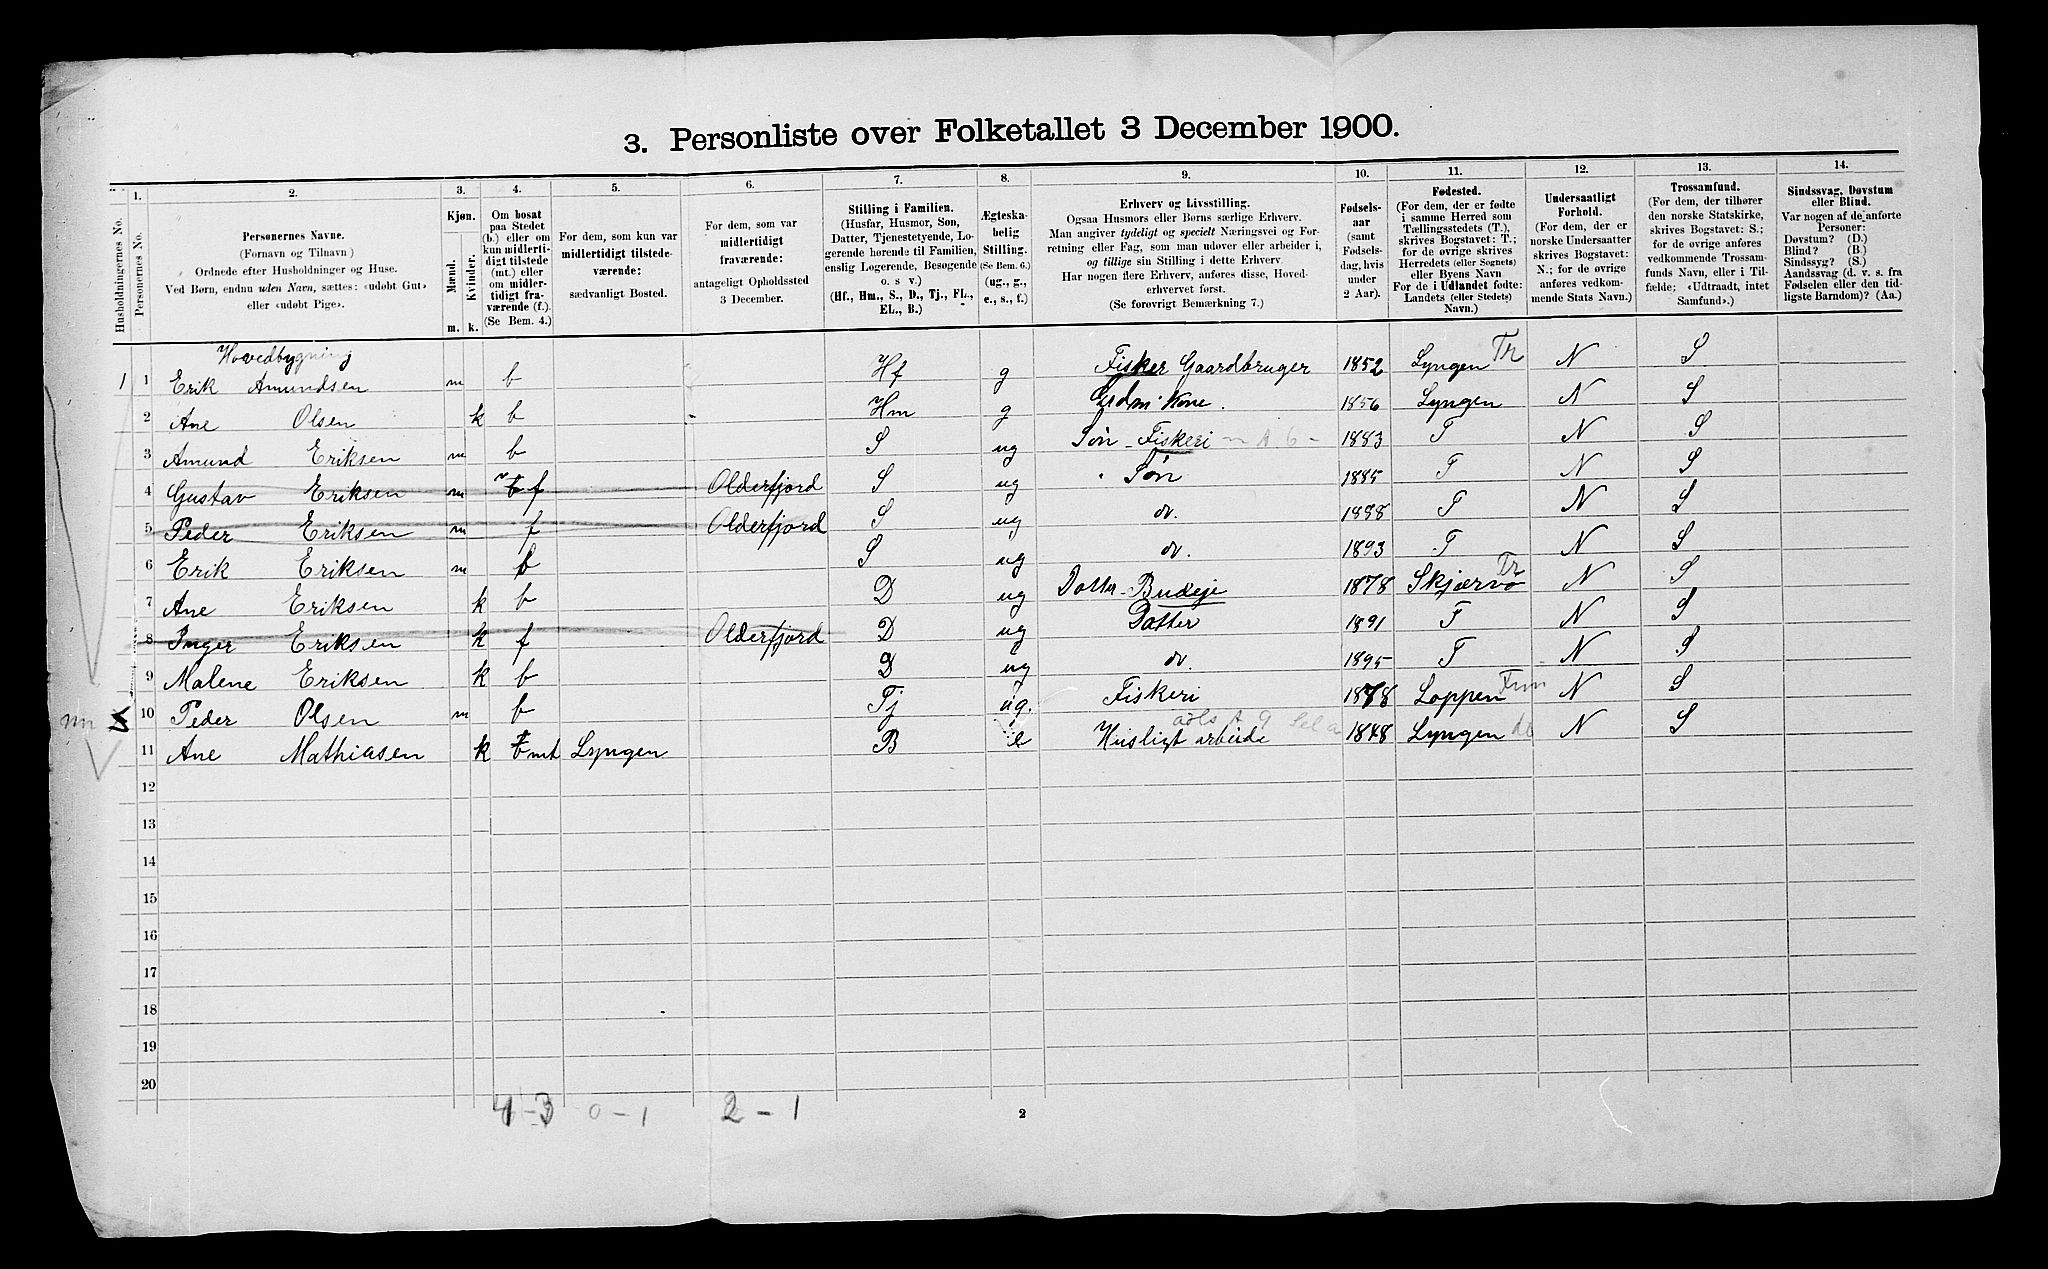 3. Personliste over Folketallet 3 December 1900.
1. 2. 3. 4. 5. 6. 7. 8. 9. 10. 11. 12. 13. 14.
Husholdningernes No.
Personernes No.
Personernes Navne.
(Fornavn og Tilnavn)
Ordnede efter Husholdninger og Huse.
Ved Børn, endnu uden Navn, sættes: «udøbt Gut»
eller «udøbt Pige».
Kjøn.
Mænd.
Kvinder.
m. k.
Om bosat
paa Stedet
(b.) eller om
kun midlerti-
digt tilstede
(mt.) eller
om midler-
tidigt fra-
værende (f.).
(Se Bem. 4.)
For dem, som kun var
midlertidigt tilstede-
værende:
sædvanligt Bosted.
For dem, som var
midlertidigt
fraværende:
antageligt Opholdssted
3 December.
Stilling i Familien.
(Husfar, Husmor, Søn,
Datter, Tjenestetyende, Lo-
gerende hørende til Familien,
enslig Logerende, Besøgende
o. s. v.)
(Hf., Hm., S., D., Tj., FL.,
EL., B.)
Ægteska-
belig
Stilling.
(Se Bem. 6.)
(ug., g.,
e., s., f.)
Erhverv og Livsstilling.
Ogsaa Husmors eller Børns særlige Erhverv.
Man angiver tydeligt og specielt Næringsvei og For-
retning eller Fag, som man udøver eller arbeider i,
og tillige sin Stilling i dette Erhverv.
Har nogen flere Erhverv, anføres disse, Hoved-
erhvervet først.
(Se forøvrigt Bemærkning 7.)
Fødsels-
aar
(samt
Fødsels-
dag, hvis
under
2 Aar).
Fødested.
(For dem, der er fødte
i samme Herred som
Tællingsstedets (T.),
skrives Bogstavet: T.;
for de øvrige skrives
Herredets (eller Sognets)
eller Byens Navn
For de i Udlandet fødte:
Landets (eller Stedets)
Navn.)
Undersaatligt
Forhold.
(For dem, der er
norske Undersaatter
skrives Bogstavet:
N.; for de øvrige
anføres vedkom-
mende Stats Navn.)
Trossamfund.
(For dem, der tilhører
den norske Statskirke,
skrives Bogstavet: S.;
for de øvrige anføres
vedkommende Trossam-
funds Navn, eller i Til-
fælde; «Udtraadt, intet
Samfund».)
Sindssvag, Døvstum
eller Blind.
Var nogen af de anførte
Personer:
Døvstum? (D.)
Blind? (B.)
Sindssyg? (S.)
Aandssvag (d. v. s. fra
Fødselen eller den tid-
ligste Barndom)? (Aa.)
Hovedbygning
1 1 Erik Amundsen m b Hf g Fisker Gaardbruger 1852 Lyngen Tr N S
2 Ane Olsen k b Hm g Grdm. Kone. 1856 Lyngen N S
3 Amund Eriksen m b S ug Søn - Fiskeri 1883 T N S
4 Gustav Eriksen m f Olderfjord S ug Søn 1885 T N S
5 Peder Eriksen m f Olderfjord S ug do. 1888 T N S
6 Erik Eriksen m b S ug do. 1893 T N S
7 Ane Eriksen k b D ug Datter - Budeje 1878 Skjærvø Tr N S
8 Inger Eriksen k f Olderfjord D ug Datter 1891 T N S
9 Malene Eriksen k b D ug do. 1895 T N S
10 Peder Olsen m b Tj ug. Fiskeri 1878 Loppen Finn N S
11 Ane Mathiasen k mt Lyngen B e Husligt arbeide 1848 Lyngen N S
12
13
14
15
16
17
18
19
20
4-3 0-1 2-1
2